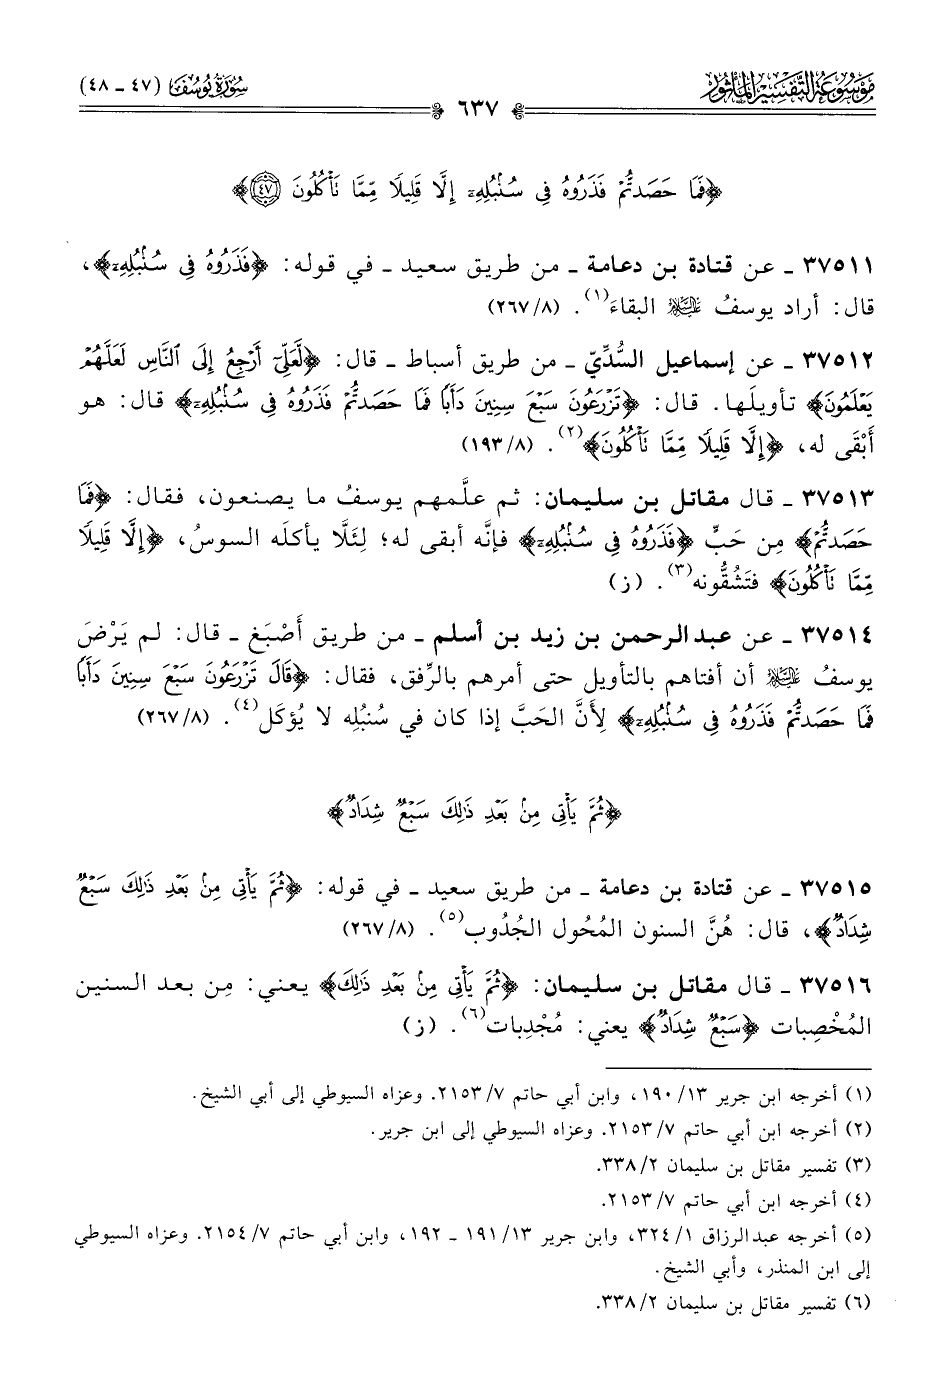 مَوْسُوعَة التَّفْسِيْر المَأْثُوْر
سُورَةُ يُوسُفَ (٤٧ - ٤٨)
٦٣٧
﴿فَمَا حَصَدتُّمْ فَذَرُوهُ فِى سُنۢبُلِهِۦٓ إِلَّا قَلِيلًا مِّمَّا تَأْكُلُونَ ٤٧﴾
٣٧٥١١ - عن قتادة بن دعامة - من طريق سعيد - في قوله: ﴿فَذَرُوهُ فِى سُنۢبُلِهِۦٓ﴾،
قال: أراد يوسفُ عليه السلام البقاءَ(١). (٢٦٧/٨)
٣٧٥١٢ - عن إسماعيل السُّدِّيّ - من طريق أسباط - قال: ﴿لَّعَلِّىٓ أَرْجِعُ إِلَى ٱلنَّاسِ لَعَلَّهُمْ
يَعْلَمُونَ﴾ تأويلَها. قال: ﴿تَزْرَعُونَ سَبْعَ سِنِينَ دَأَبًا فَمَا حَصَدتُّمْ فَذَرُوهُ فِى سُنۢبُلِهِۦٓ﴾ قال: هو
أَبْقَى له، ﴿إِلَّا قَلِيلًا مِّمَّا تَأْكُلُونَ﴾(٢). (١٩٣/٨)
٣٧٥١٣ - قال مقاتل بن سليمان: ثم علَّمهم يوسفُ ما يصنعون، فقال: ﴿فَمَا
حَصَدتُّمْ﴾ مِن حَبٍّ ﴿فَذَرُوهُ فِى سُنۢبُلِهِۦٓ﴾ فإنَّه أبقى له؛ لِئَلَّا يأكلَه السوسُ، ﴿إِلَّا قَلِيلًا
مِّمَّا تَأْكُلُونَ﴾ فتَشُقُّونه(٣). (ز)
٣٧٥١٤ - عن عبد الرحمن بن زيد بن أسلم - من طريق أَصْبَغ - قال: لم يَرْضَ
يوسفُ عليه السلام أن أفتاهم بالتأويل حتى أمرهم بالرِّفق، فقال: ﴿قَالَ تَزْرَعُونَ سَبْعَ سِنِينَ دَأَبًا
فَمَا حَصَدتُّمْ فَذَرُوهُ فِى سُنۢبُلِهِۦٓ﴾ لِأَنَّ الحَبَّ إذا كان في سُنبُله لا يُؤكَل(٤). (٢٦٧/٨)
﴿ثُمَّ يَأْتِى مِنۢ بَعْدِ ذَٰلِكَ سَبْعٌ شِدَادٌ﴾
٣٧٥١٥ - عن قتادة بن دعامة - من طريق سعيد - في قوله: ﴿ثُمَّ يَأْتِى مِنۢ بَعْدِ ذَٰلِكَ سَبْعٌ
شِدَادٌ﴾، قال: هُنَّ السنون المُحُول الجُدُوب(٥). (٢٦٧/٨)
٣٧٥١٦ - قال مقاتل بن سليمان: ﴿ثُمَّ يَأْتِى مِنۢ بَعْدِ ذَٰلِكَ﴾ يعني: مِن بعد السنين
المُخْصِبات ﴿سَبْعٌ شِدَادٌ﴾ يعني: مُجْدِبات(٦). (ز)
(١) أخرجه ابن جرير ١٩٠/١٣، وابن أبي حاتم ٢١٥٣/٧. وعزاه السيوطي إلى أبي الشيخ.
(٢) أخرجه ابن أبي حاتم ٢١٥٣/٧. وعزاه السيوطي إلى ابن جرير.
(٣) تفسير مقاتل بن سليمان ٣٣٨/٢.
(٤) أخرجه ابن أبي حاتم ٢١٥٣/٧.
(٥) أخرجه عبد الرزاق ٣٢٤/١، وابن جرير ١٩١/١٣ - ١٩٢، وابن أبي حاتم ٢١٥٤/٧. وعزاه السيوطي
إلى ابن المنذر، وأبي الشيخ.
(٦) تفسير مقاتل بن سليمان ٣٣٨/٢.